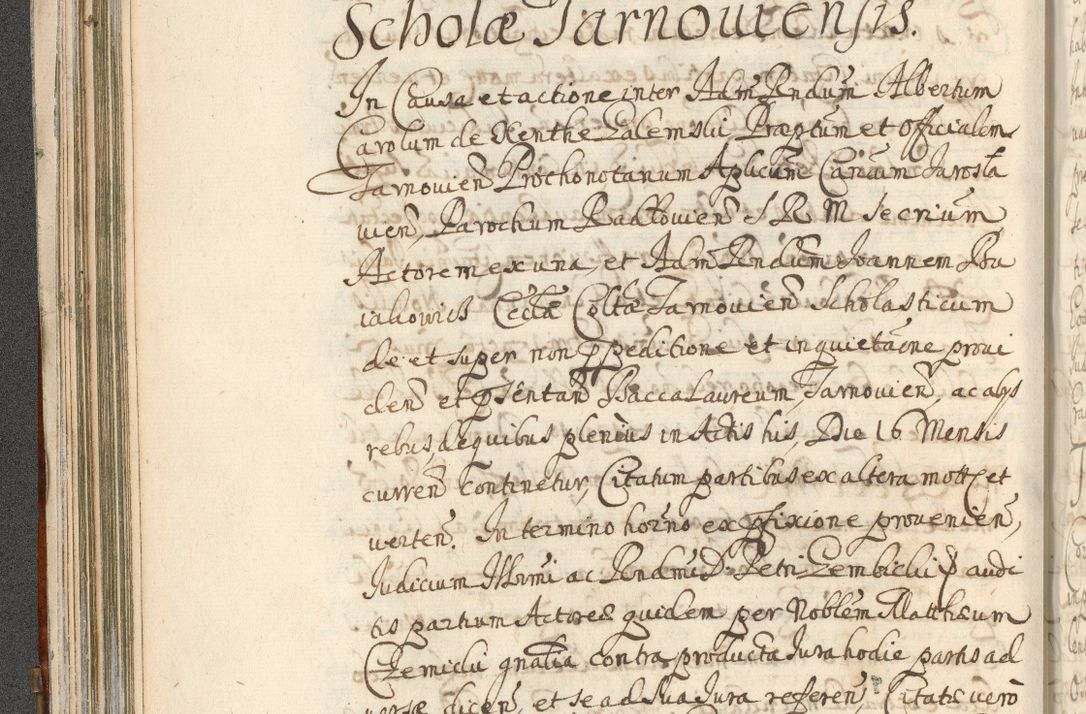 Scholæ Tarnoviensis.
In Causa et actione inter Adm Rndum Albertum
Carolum de Xenthe Zalemski Præptum et Officialem
Tarnovień Prothonotarium Aplicum Canicum Jarosła
vień, Parochum Radłovień S R M Secrium
Actorem ex una, et Adm Rndum Joannem
iakowicz Eccłæ Collæ Tarnovień Scholasticum
de et super non expeditione et inquietaone provi
den et psentań Baccalaureum Tarnovień, ac alys
rebus, de quibus plenius in Actis his, Die 16 Mensis
curreń continetur, Citatum partibus ex altera mott et
verteń. In termino horno ex pfixione provenień,
Judicium Illrmi ac Rndmi D. Petri Gembicki audi
tis partium Actoreæ quidem per Noblem Matthæum
Czemicki gnalia contra producta Jura hodie partis ad
versæ diceń, et se ad sua Jura refereń, Citatæ vero